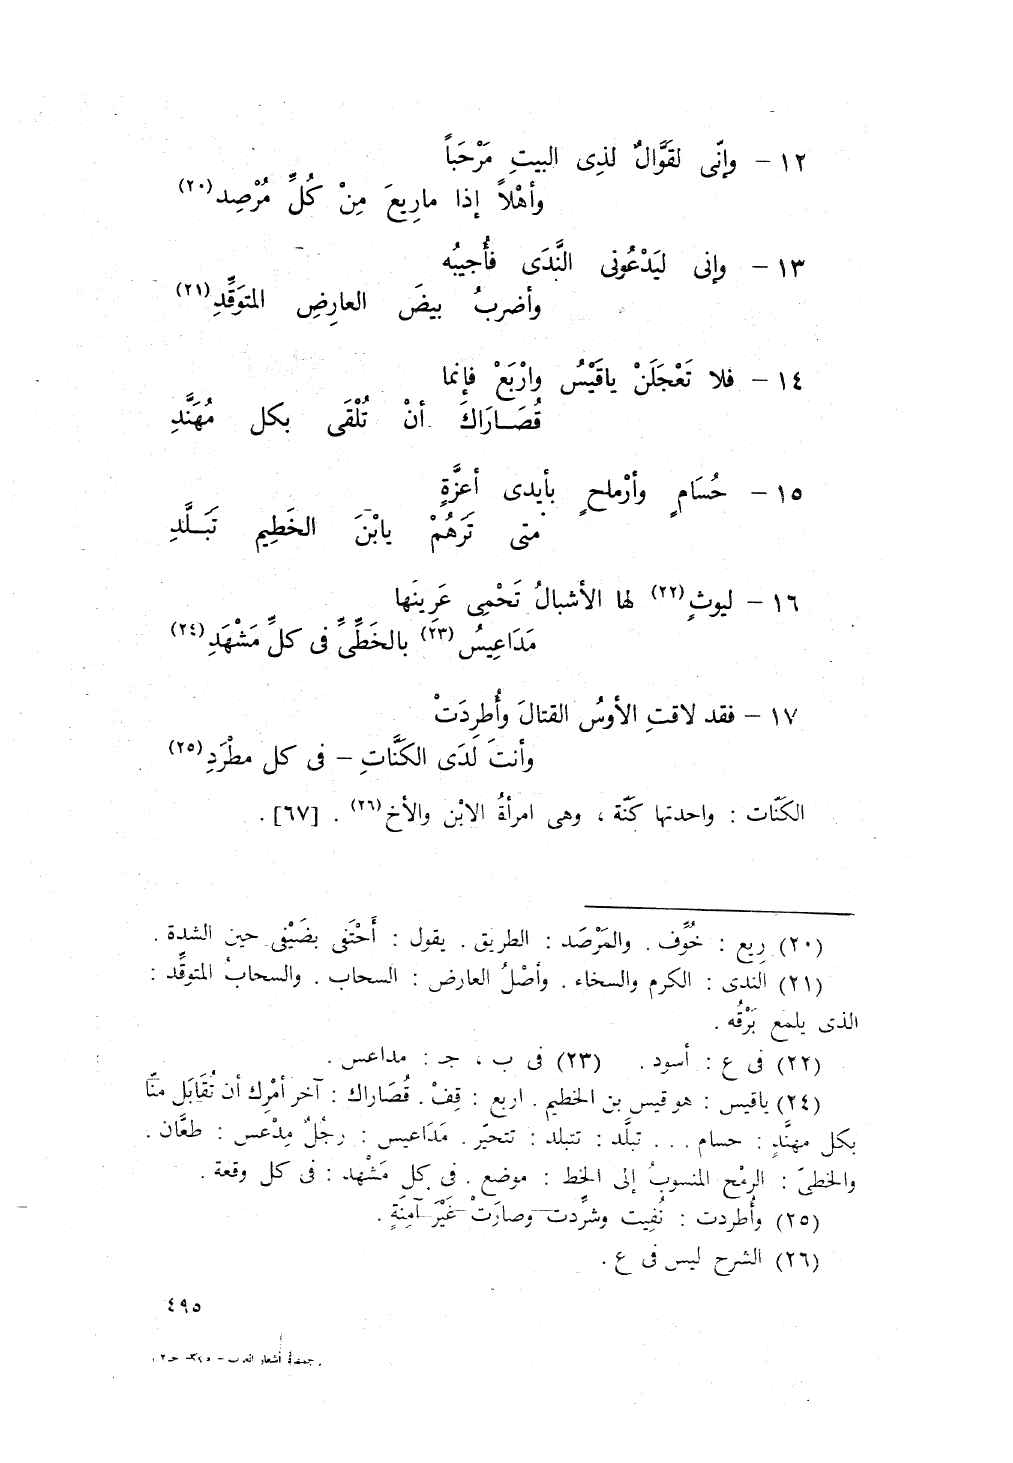 ١٢ – وإنّى لقَوَّالٌ لذِى البيتِ مَرْحَباً
وأهْلاً إذا مارِيعَ مِنْ كُلِّ مُرْصِد (٢٠)
١٣ – وإنى ليَدْعُونى النَّدَى فأُجيبُه
وأضربُ بيضَ العارِضِ المتوَقِّدِ (٢١)
١٤ – فلا تَعْجَلَنْ ياقَيْسُ وارْبَعْ فإنما
قُصَارَاكَ أنْ تُلْقَى بكل مُهَنَّدِ
١٥ – حُسَامٍ وأرْماحٍ بأيدى أعزَّةٍ
متى تَرَهُمْ يابْنَ الخَطِيم تَبَلَّدِ
١٦ – ليوثٍ (٢٢) لها الأشبالُ تَحْمِى عَرِينَها
مَدَاعِيسُ (٢٣) بالخَطِّىِّ فى كلِّ مَشْهَدِ (٢٤)
١٧ – فقد لاقتِ الأوسُ القتالَ وأُطرِدَتْ
وأنتَ لَدَى الكَنَّاتِ – فى كل مطْرَدِ (٢٥)
الكَنّات : واحدتها كَنّة ، وهى امرأةُ الابْن والأخ (٢٦) . [٦٧] .
(٢٠) رِيع : خُوِّف . والمَرْصَد : الطريق . يقول : أحْتَفى بضَيْفى حين الشدة .
(٢١) الندى : الكرم والسخاء . وأصْلُ العارض : السحاب . والسحابُ المتوقِّد :
الذى يلمع بَرْقُه .
(٢٢) فى ع : أسود . (٢٣) فى ب ، جـ : مداعس .
(٢٤) ياقيس : هو قيس بن الخطيم . اربع : قِفْ . قُصَاراك : آخر أمْرِك أن تُقَابَل منّا
بكل مهنَّدٍ : حسام . . . تبلَّد : تتبلد : تتحيّر . مَدَاعيس : رجُلٌ مِدْعس : طعَّان .
والخطىّ : الرمْح المنسوبُ إلى الخط : موضع . فى كل مَشْهد : فى كل وقعة .
(٢٥) وأُطردت : نُفِيت وشرِّدت وصارَتْ غَيْرَ آمِنَةٍ .
(٢٦) الشرح ليس فى ع .
٤٩٥